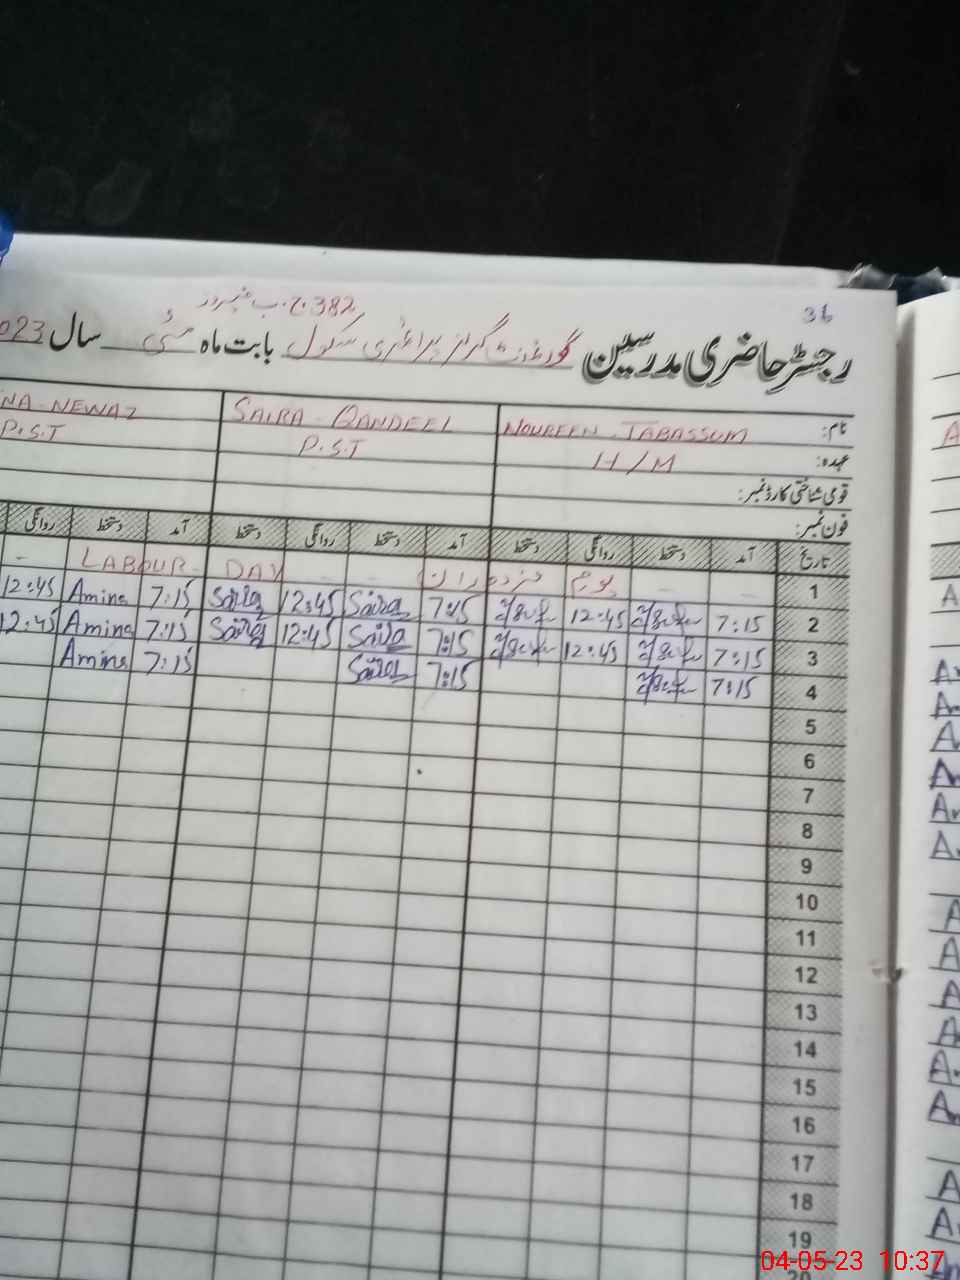 36
382 ج.ب
رجسٹر حاضری مدرسین گورنمنٹ گرلز پرائمری سکول بابت ماہ مئی سال 2023
نام: NOUREEN TABASSUM SAIRA QANDEEL NA NEWAZ
عہدہ: H/M P.S.T P.S.T
قومی شناختی کارڈ نمبر:
فون نمبر:
تاریخ آمد دستخط روانگی دستخط آمد دستخط روانگی دستخط آمد دستخط روانگی
1 یوم مزدوراں LABOUR DAY
2 7:15 12:45 7:15 Saira 12:45 Saira 7:15 Amina 12:45
3 7:15 12:45 7:15 Saira 12:45 Saira 7:15 Amina 12:45
4 7:15 7:15 Saira 7:15 Amina
5
6
7
8
9
10
11
12
13
14
15
16
17
18
19
20
04-05-23 10:37